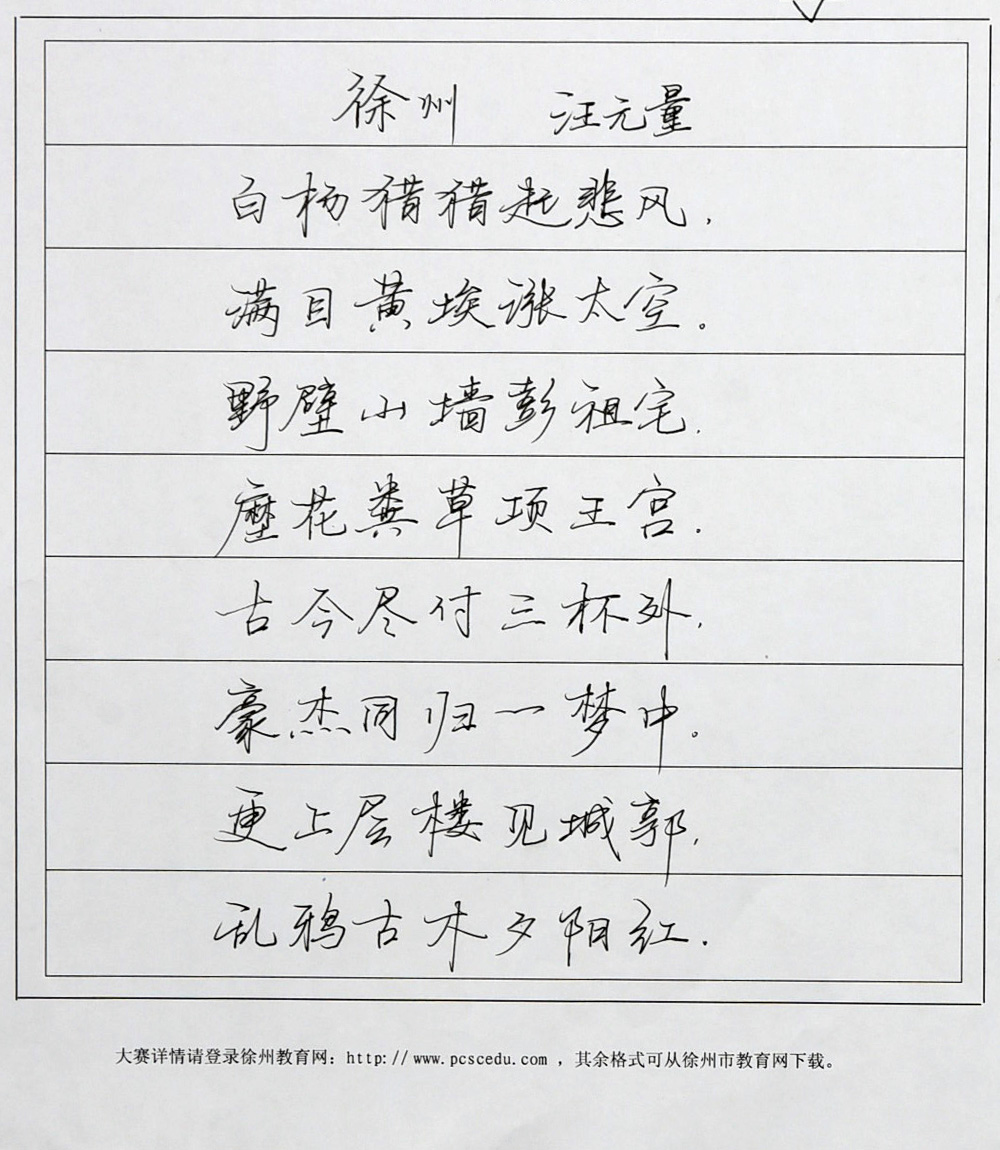 徐州 汪元量
白杨猎猎起悲风，
满目黄埃涨太空。
野壁山墙彭祖宅.
塺花粪草项王宫.
古今尽付三杯外，
豪杰同归一梦中。
更上层楼见城郭，
乱鸦古木夕阳红.
大赛详情请登录徐州教育网：http://www.pcscedu.com ，其余格式可从徐州市教育网下载。